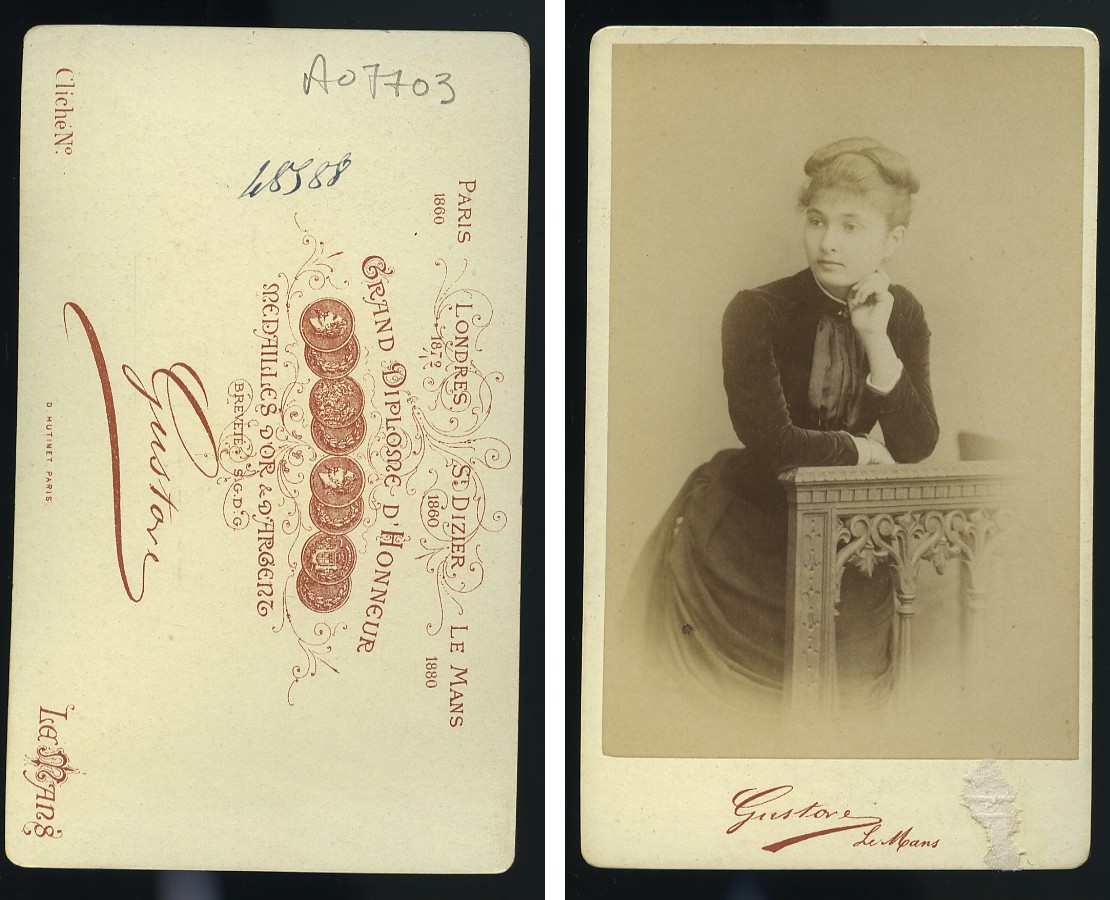 A07703
48588
PARIS
1860
LONDRES
1872
ST DIZIER
1860
LE MANS
1880
GRAND DIPLOME D'HONNEUR
MEDAILLES D'OR & D'ARGENT
BREVETÉ S.G.D.G.
Gustave
Cliché No.
D. HUTINET PARIS.
Le Mans
Gustave
Le Mans